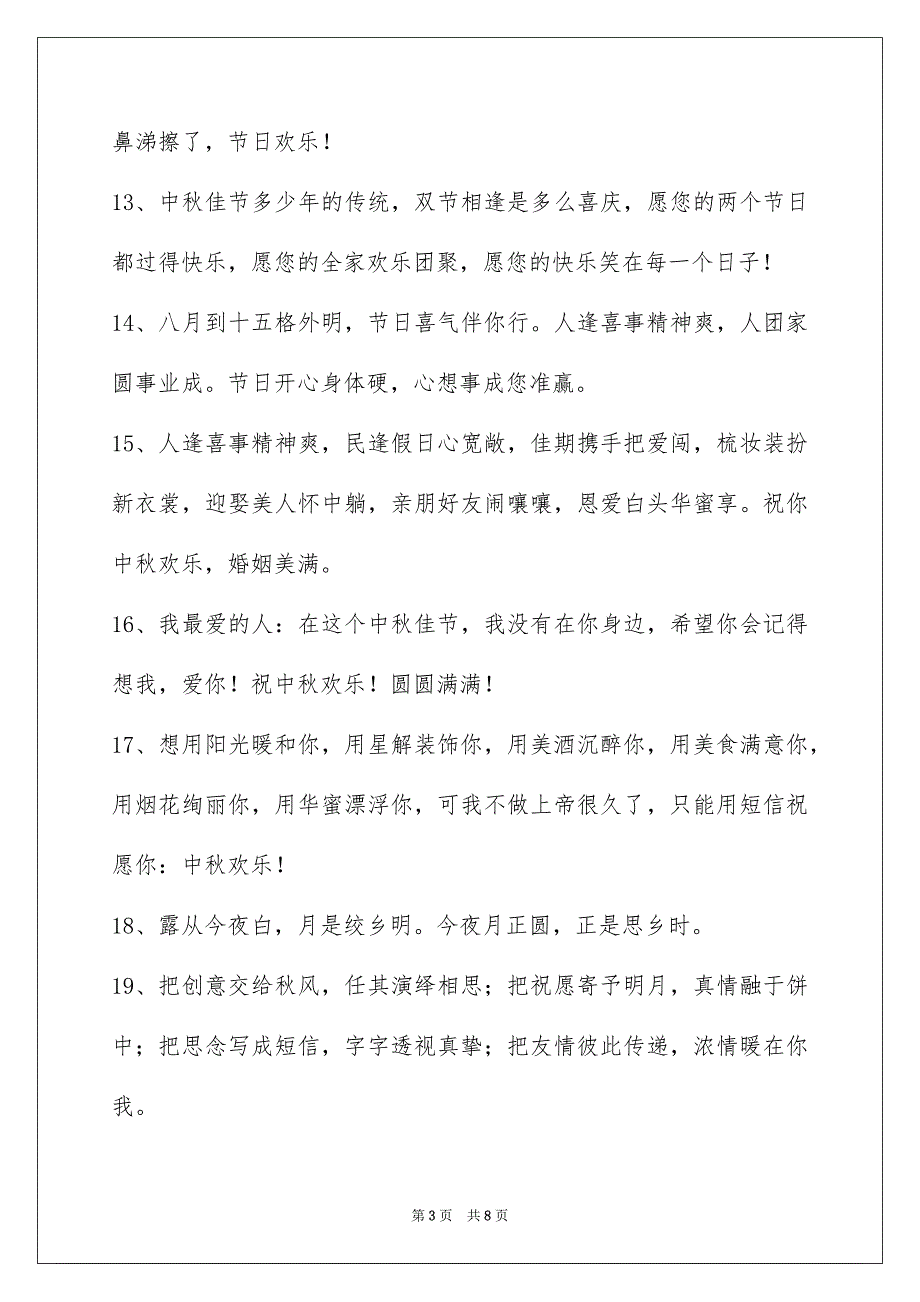 鼻涕擦了，节日欢乐！
13、中秋佳节多少年的传统，双节相逢是多么喜庆，愿您的两个节日
都过得快乐，愿您的全家欢乐团聚，愿您的快乐笑在每一个日子！
14、八月到十五格外明，节日喜气伴你行。人逢喜事精神爽，人团家
圆事业成。节日开心身体硬，心想事成您准赢。
15、人逢喜事精神爽，民逢假日心宽敞，佳期携手把爱闯，梳妆装扮
新衣裳，迎娶美人怀中躺，亲朋好友闹嚷嚷，恩爱白头华蜜享。祝你
中秋欢乐，婚姻美满。
16、我最爱的人：在这个中秋佳节，我没有在你身边，希望你会记得
想我，爱你！祝中秋欢乐！圆圆满满！
17、想用阳光暖和你，用星解装饰你，用美酒沉醉你，用美食满意你，
用烟花绚丽你，用华蜜漂浮你，可我不做上帝很久了，只能用短信祝
愿你：中秋欢乐！
18、露从今夜白，月是绞乡明。今夜月正圆，正是思乡时。
19、把创意交给秋风，任其演绎相思；把祝愿寄予明月，真情融于饼
中；把思念写成短信，字字透视真挚；把友情彼此传递，浓情暖在你
我。
第 3 页 共 8 页